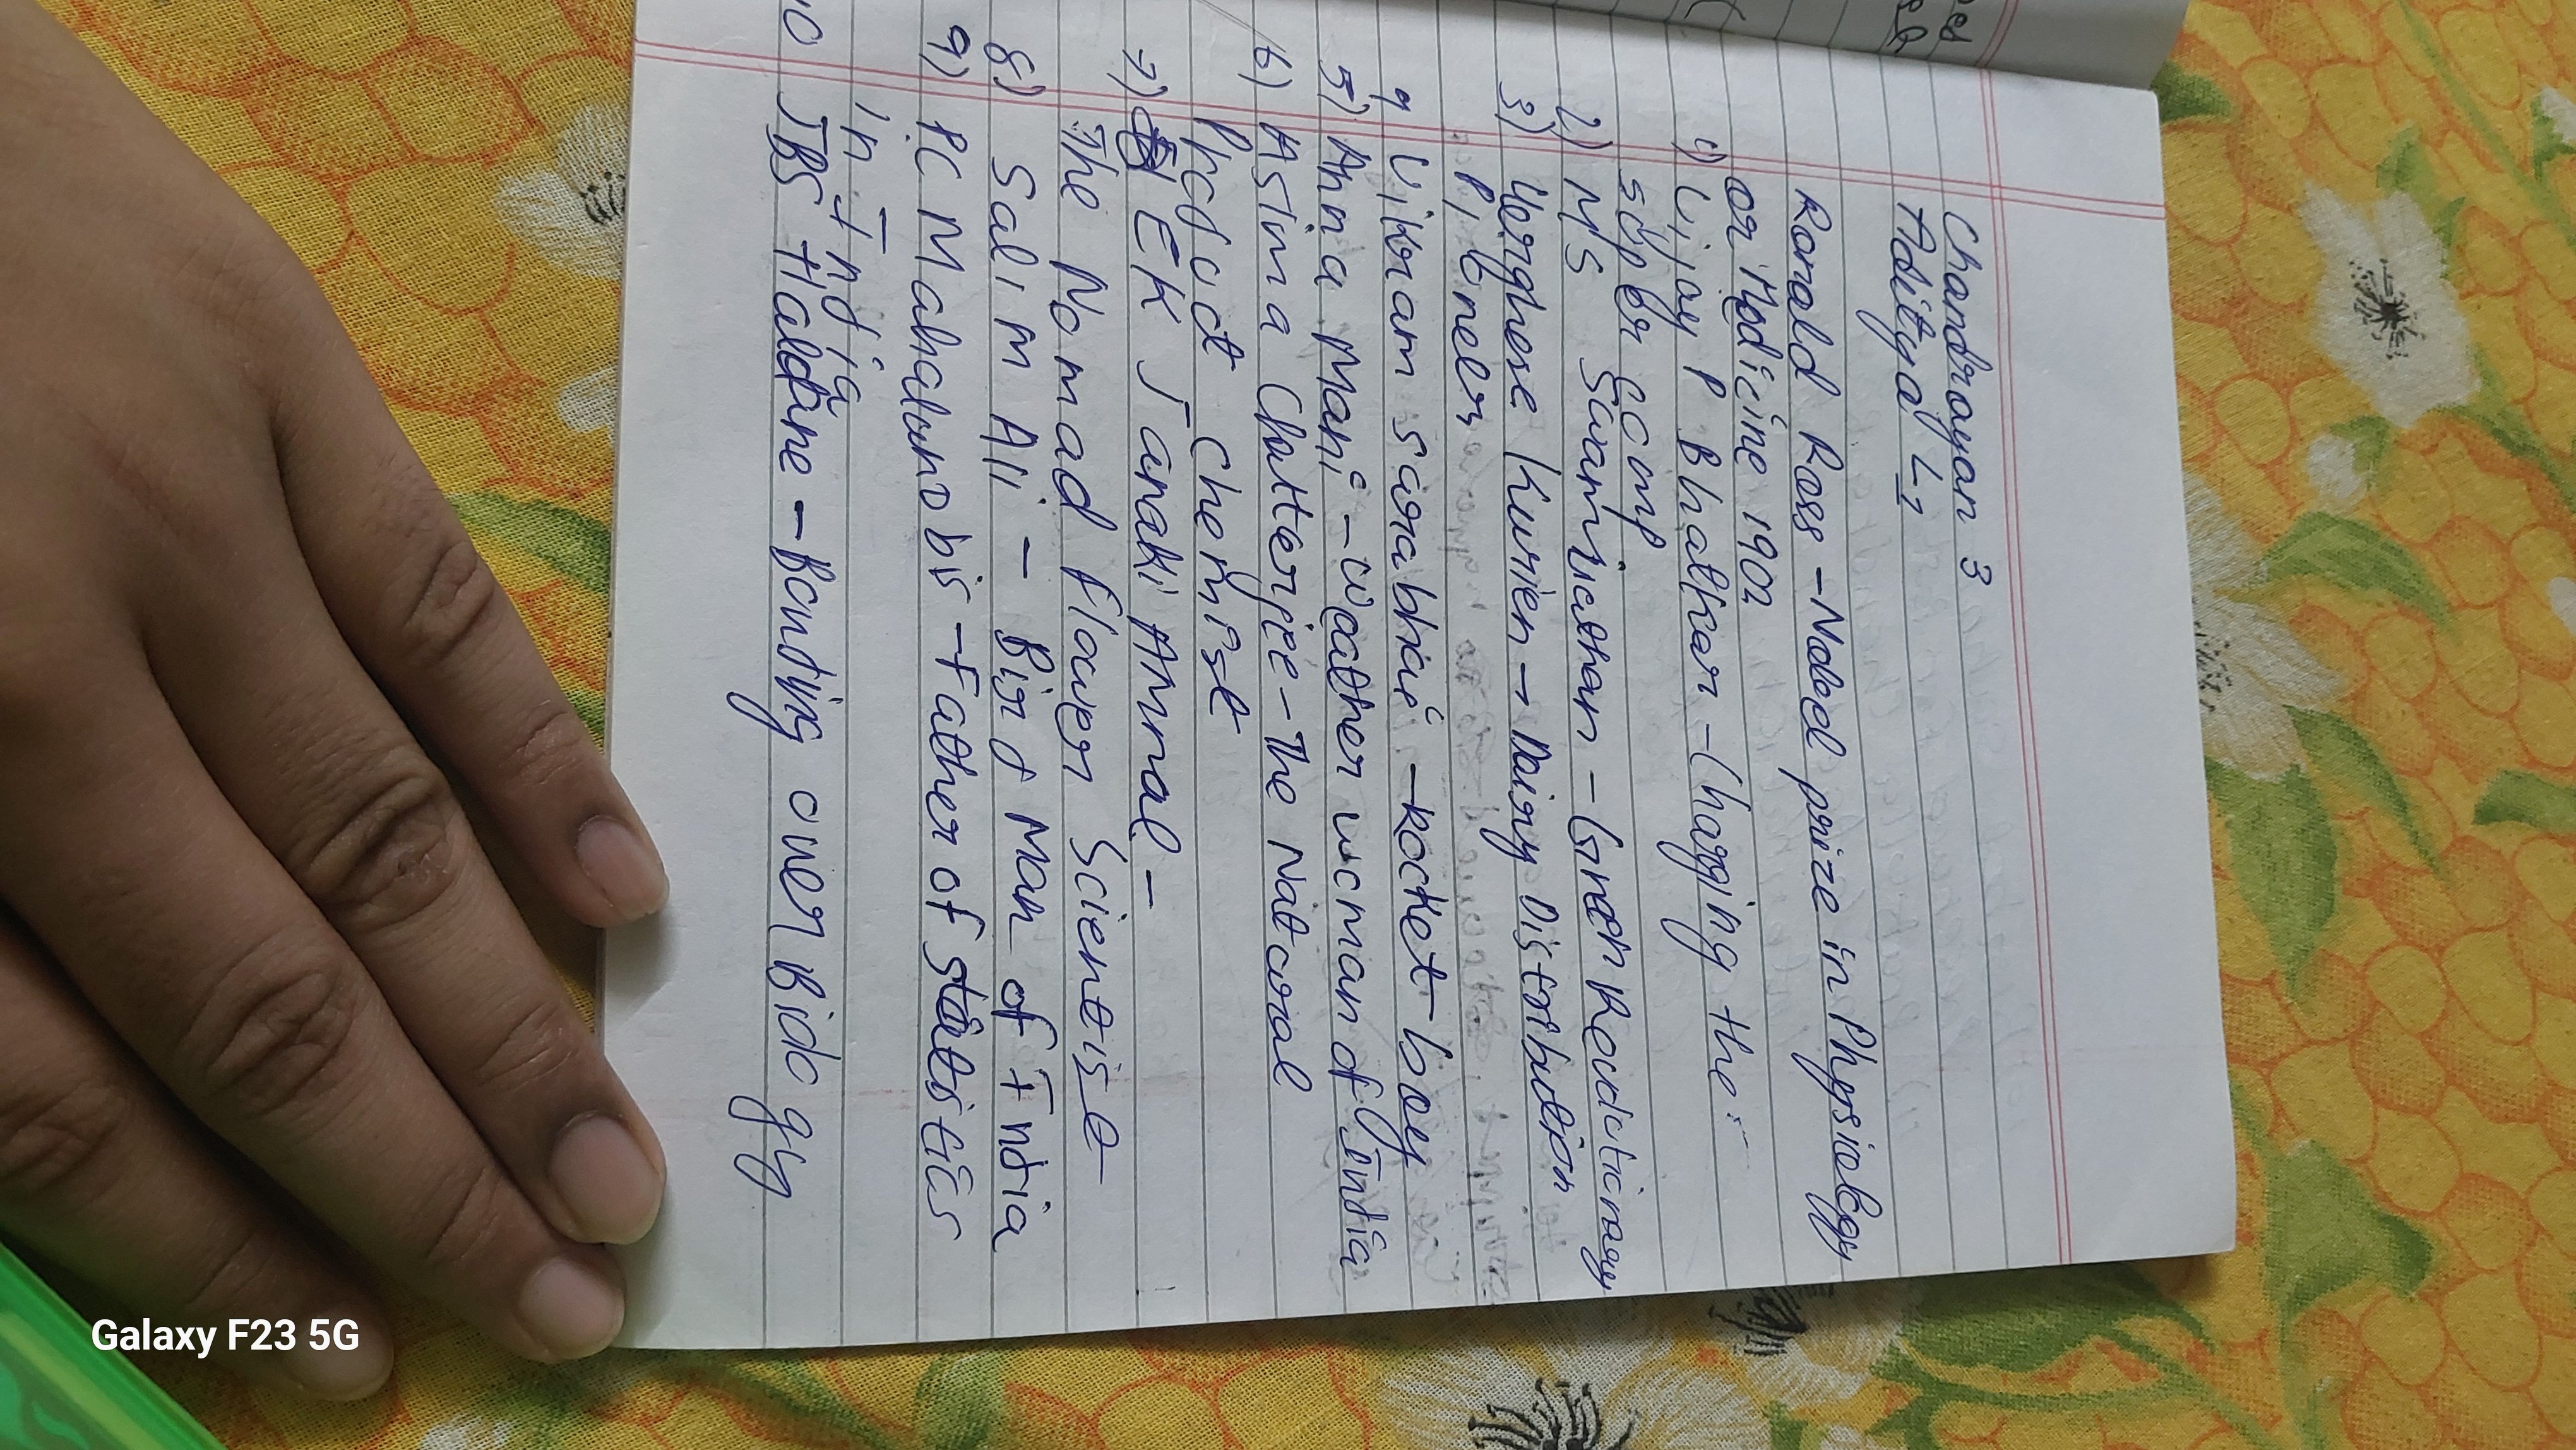 Chandrayan 3
Aditya L1
Ronald Ross - Nobel prize in Physiology
or Medicine 1902
1) Vijay P Bhatkar - Charging the
super comp
2) MS Swaminathan - Green
3) Verghese Kurien → Dairy Distribution
Pioneer
4 Vikram Sarabhai - Rocket boy
5) Anna Mani - Weather woman of India
6) Asima Chatterjee - The Natural
Product Chemist
7) EK Janaki Ammal -
The Nomad Flower Scientist
8) Salim Ali - Bird Man of India
9) PC Mahalanobis - Father of Statistics
in India
10 JBS Haldane - Bonding over
Galaxy F23 5G